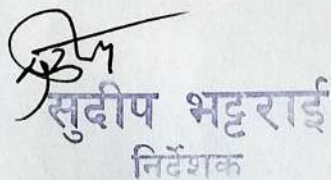 सुदीप भट्टराई
निर्देशक